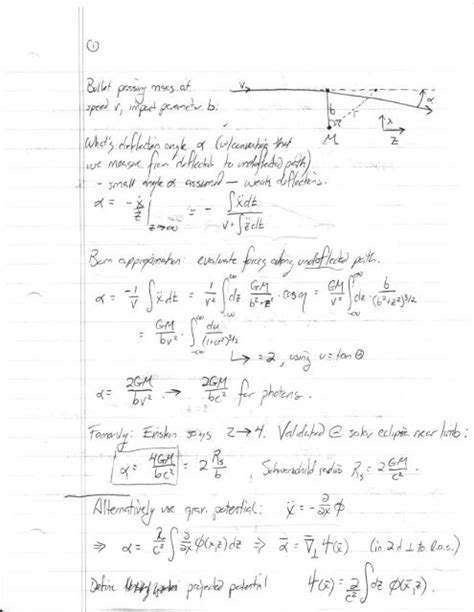 ①
Bullet passing mass at
speed v, impact parameter b:
v
b
r
M
α
x
z
What's deflection angle α (w/ convention that
we measure from deflected to undeflected path)
- small angle α assumed — weak deflections.
α = - ẋ/ż |_{z→∞} = - ∫ẍdt / (v + ∫z̈dt)
Born approximation: evaluate forces along undeflected path.
α = -1/v ∫ẍdt = 1/v² ∫_{-∞}^{∞} dz GM/(b²+z²) · cos η = GM/v² ∫_{-∞}^{∞} dz b/(b²+z²)^{3/2}
= GM/bv² ∫_{-∞}^{∞} du/(1+u²)^{3/2}
↳ = 2, using u = tan θ
α = 2GM/bv² → 2GM/bc² for photons.
Famously: Einstein says 2→4. Validated @ solar eclipse near limb:
α = 4GM/bc² = 2 R_s/b, Schwarzschild radius R_s = 2GM/c².
Alternatively use grav. potential: ẍ = - ∂/∂x φ
⇒ α = 2/c² ∫ ∂/∂x φ(x,z)dz ⇒ ᾱ = ∇̄_⊥ Ψ(x̄) (in 2d ⊥ to l.o.s.)
Define projected potential Ψ(x̄) = 2/c² ∫dz φ(x̄,z).